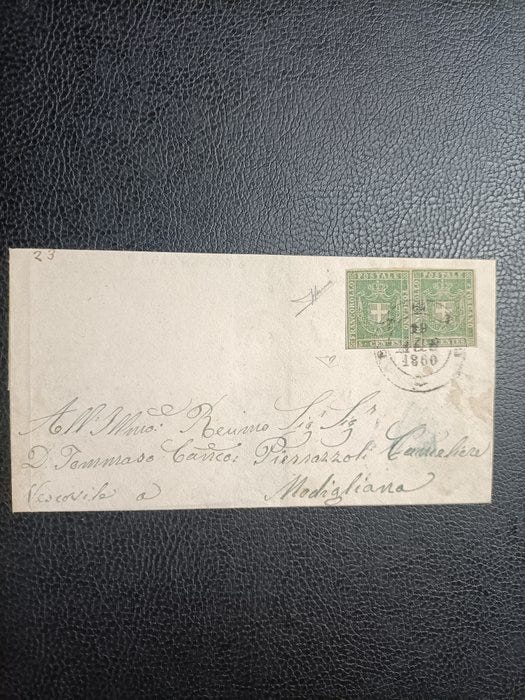 23
FRANCOBOLLO POSTALE TOSCANO
FRANCOBOLLO POSTALE TOSCANO
5 CENT
1860
All' Illmo: e Revmo Sig: Sig:
D. Tommaso Canco: Pierazzoli Cancelliere
Vescovile a Modigliana